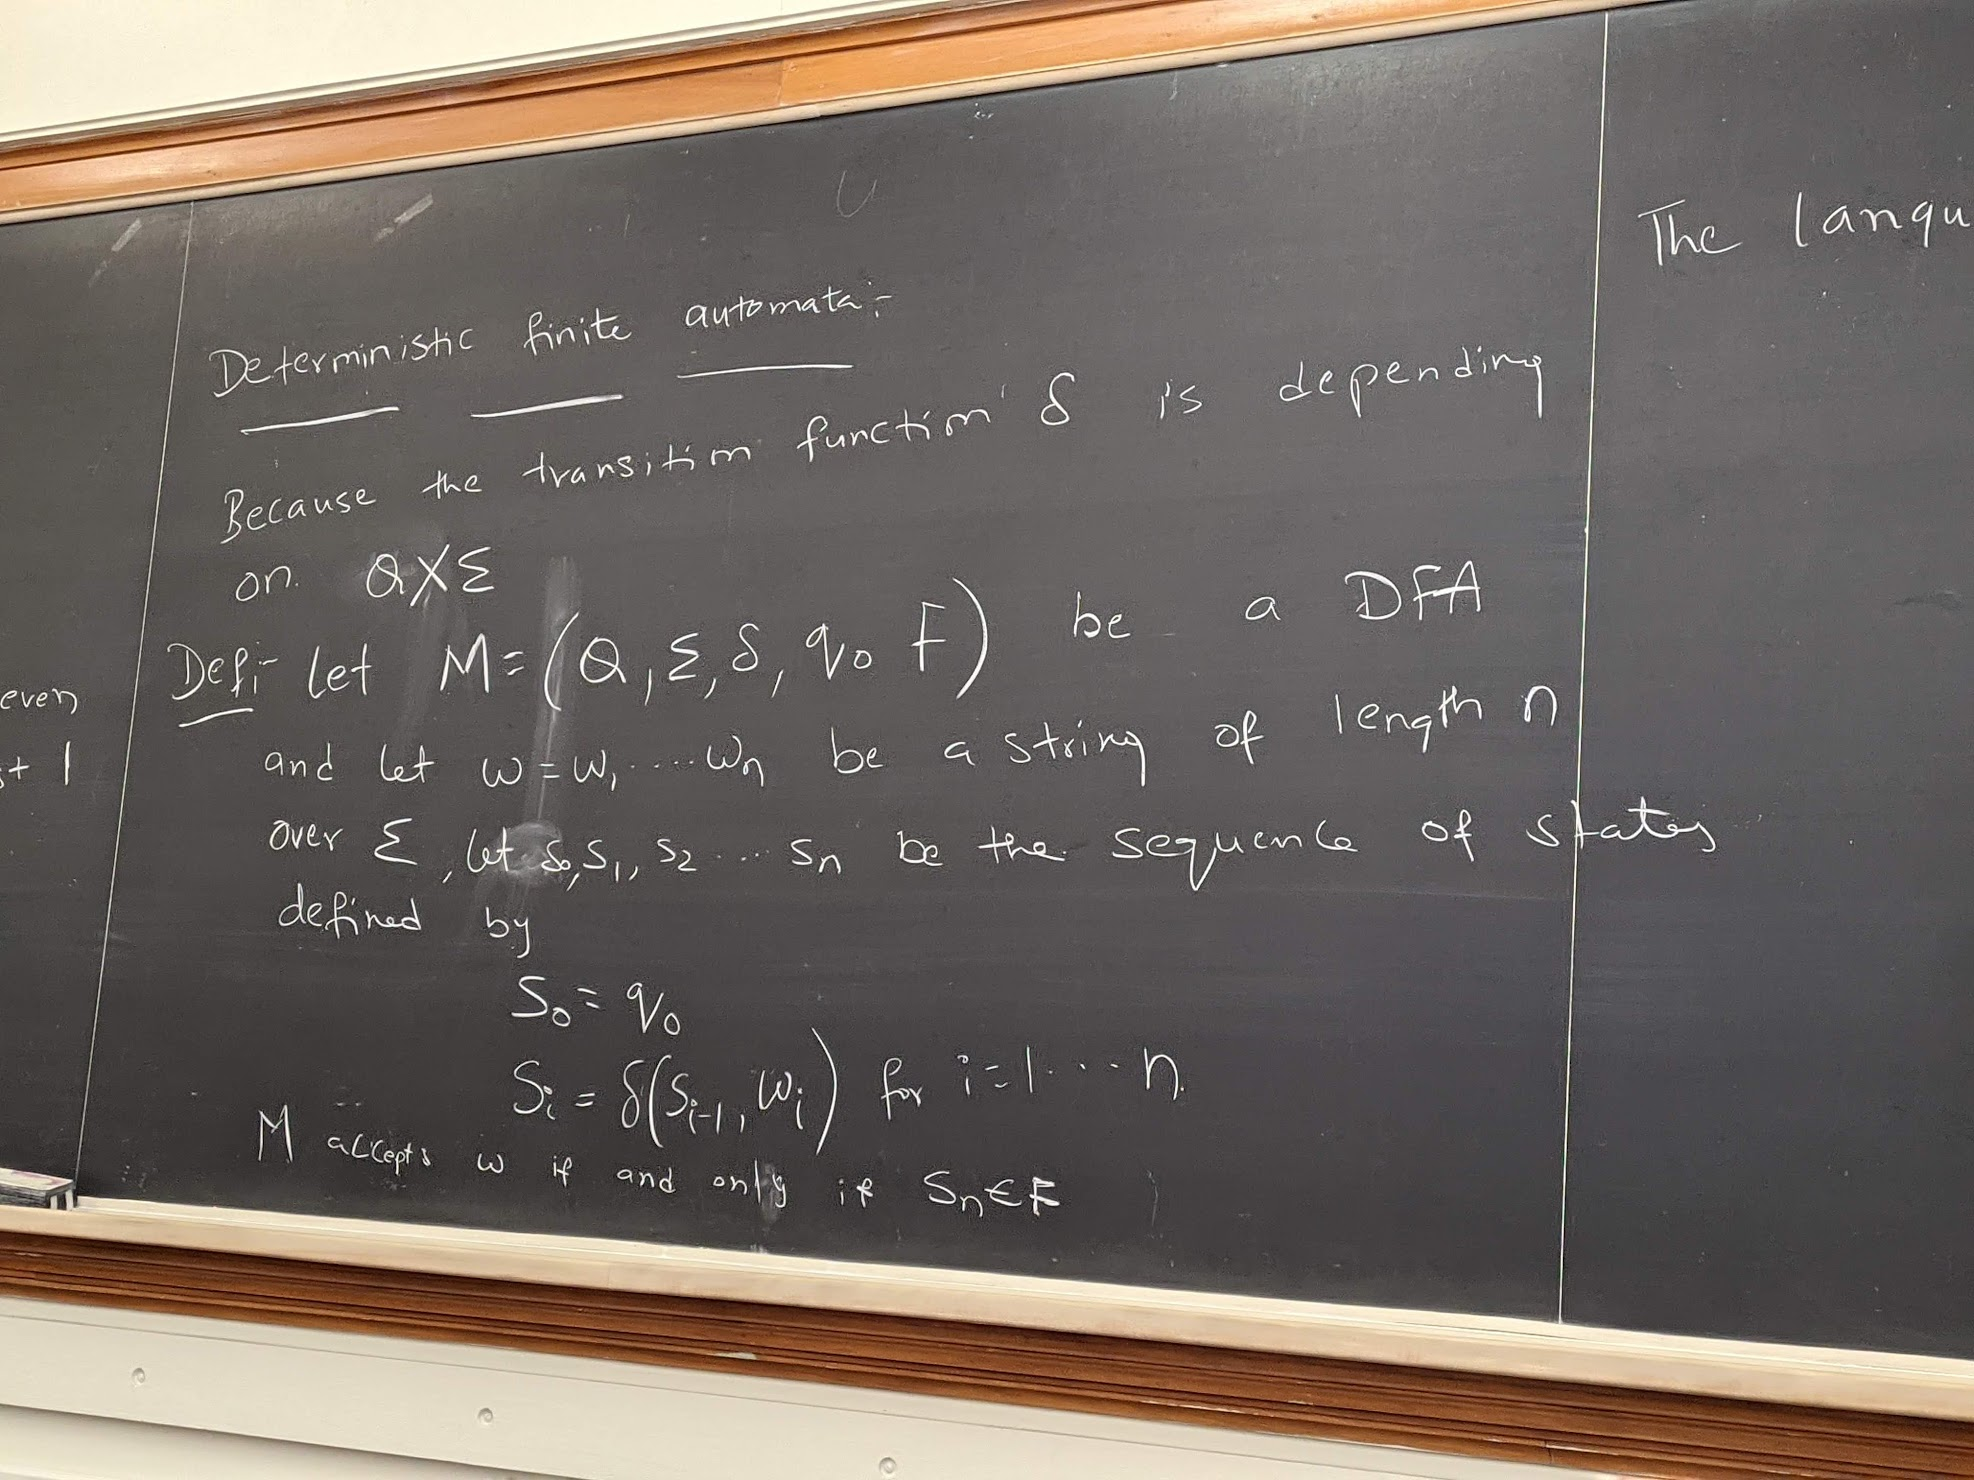 even
st 1
Deterministic finite automata:-
Because the transition function δ is depending
on Q×Σ
Def:- let M=(Q,Σ,δ,q₀ F) be a DFA
and let w=w₁....wₙ be a string of length n
over Σ, let s₀,s₁, s₂ ... sₙ be the sequence of states
defined by
S₀= q₀
Sᵢ = δ(Sᵢ₋₁, wᵢ) for i=1....n.
M accepts w if and only if Sₙ∈F
The langu